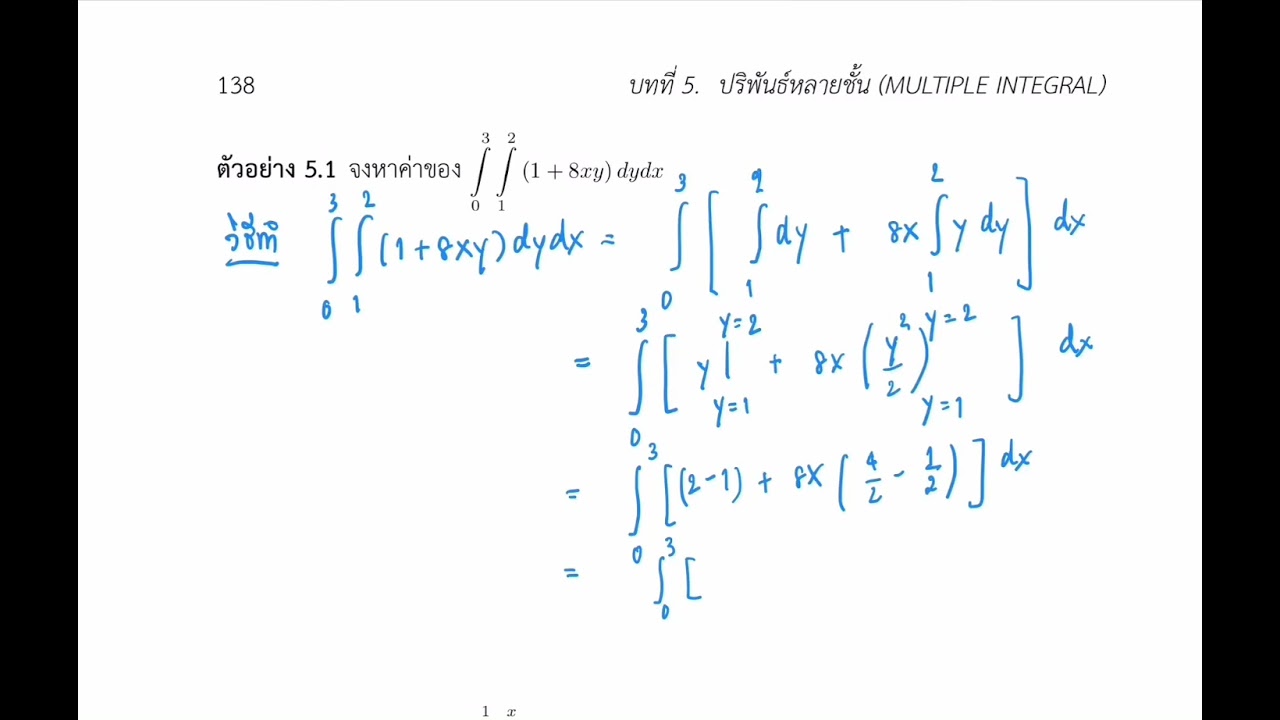 138 บทที่ 5. ปริพันธ์หลายชั้น (MULTIPLE INTEGRAL)
ตัวอย่าง 5.1 จงหาค่าของ ∫₀³ ∫₁² (1 + 8xy) dydx
วิธีทำ ∫₀³ ∫₁² (1+8xy) dy dx = ∫₀³ [ ∫₁² dy + 8x ∫₁² y dy ] dx
= ∫₀³ [ y |_{y=1}^{y=2} + 8x (y²/2)_{y=1}^{y=2} ] dx
= ∫₀³ [ (2-1) + 8x ( 4/2 - 1/2 ) ] dx
= ∫₀³ [
1 x